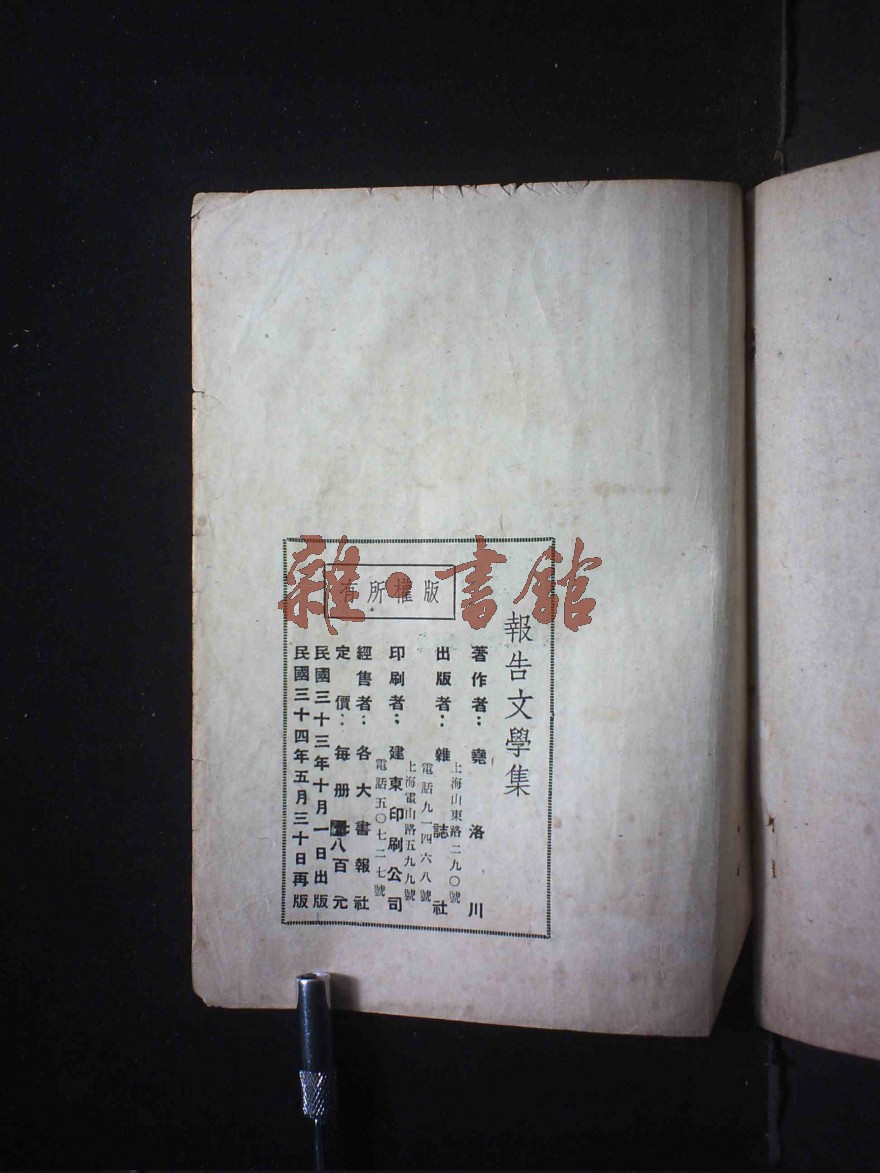 雜·書舘
報告文學集
版權所有
著作者：堯洛川
出版者：雜誌社
上海山東路二九〇號
電話九一四六八號
印刷者：建東印刷公司
上海電山路五九九號
電話五〇七二七號
經售者：各大書報社
定價：每册八百元
民國三十三年十月一日出版
民國三十四年五月三十日再版